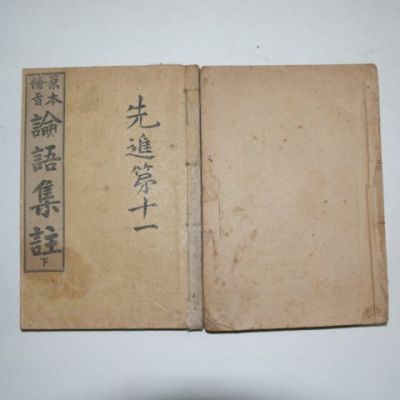 原本
備旨
論語集註 下
先進第十一